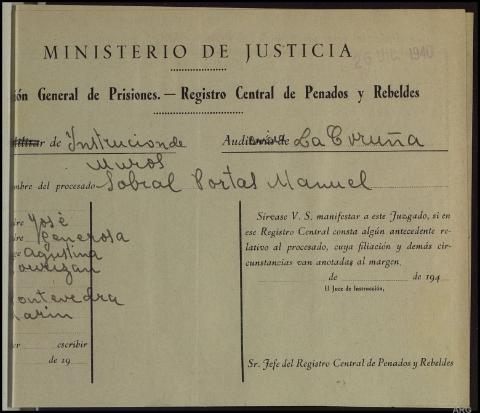 MINISTERIO DE JUSTICIA
26 DIC. 1940
ión General de Prisiones.—Registro Central de Penados y Rebeldes
de Instrucion de Muros
Audi de La Coruña
mbre del procesado Sobral Portas Manuel
re José
re Generosa
Agustina
Lourizan
ontevedra
arin
er escribir
de 19
Sírvase V. S. manifestar a este Juzgado, si en
ese Registro Central consta algún antecedente re-
lativo al procesado, cuya filiación y demás cir-
cunstancias van anotadas al margen.
de de 194
El Juez de Instrucción,
Sr. Jefe del Registro Central de Penados y Rebeldes
ARG